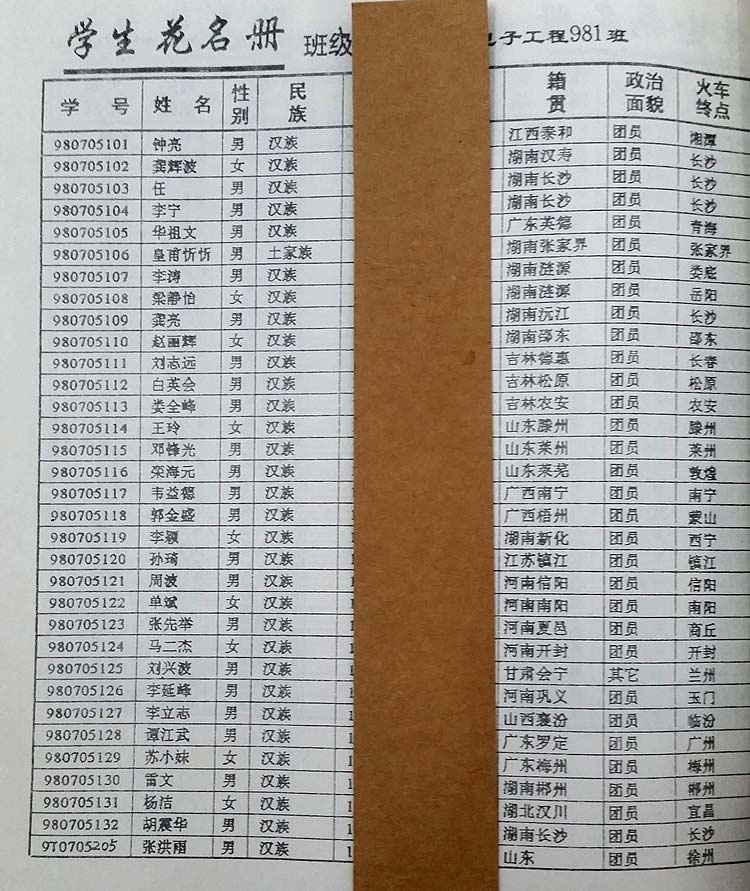 学生花名册 班级 电子工程981班
学 号 姓 名 性别 民族 籍贯 政治面貌 火车终点
980705101 钟亮 男 汉族 江西泰和 团员 湘潭
980705102 龚辉波 女 汉族 湖南汉寿 团员 长沙
980705103 任 男 汉族 湖南长沙 团员 长沙
980705104 李宁 男 汉族 湖南长沙 团员 长沙
980705105 华祖文 男 汉族 广东英德 团员 青海
980705106 皇甫忻忻 男 土家族 湖南张家界 团员 张家界
980705107 李涛 男 汉族 湖南涟源 团员 娄底
980705108 梁静怡 女 汉族 湖南涟源 团员 岳阳
980705109 龚亮 男 汉族 湖南沅江 团员 长沙
980705110 赵丽辉 女 汉族 湖南邵东 团员 邵东
980705111 刘志远 男 汉族 吉林德惠 团员 长春
980705112 白英会 男 汉族 吉林松原 团员 松原
980705113 娄全峰 男 汉族 吉林农安 团员 农安
980705114 王玲 女 汉族 山东滕州 团员 滕州
980705115 邓锋光 男 汉族 山东莱州 团员 莱州
980705116 栾海元 男 汉族 山东莱芜 团员 敦煌
980705117 韦益德 男 汉族 广西南宁 团员 南宁
980705118 郭金盛 男 汉族 广西梧州 团员 蒙山
980705119 李颖 女 汉族 湖南新化 团员 西宁
980705120 孙琦 男 汉族 江苏镇江 团员 镇江
980705121 周波 男 汉族 河南信阳 团员 信阳
980705122 单斌 女 汉族 河南南阳 团员 南阳
980705123 张先举 男 汉族 河南夏邑 团员 商丘
980705124 马二杰 女 汉族 河南开封 团员 开封
980705125 刘兴波 男 汉族 1 甘肃会宁 其它 兰州
980705126 李延峰 男 汉族 1 河南巩义 团员 玉门
980705127 李立志 男 汉族 1 山西襄汾 团员 临汾
980705128 谭江武 男 汉族 1 广东罗定 团员 广州
980705129 苏小妹 女 汉族 1 广东梅州 团员 梅州
980705130 雷文 男 汉族 1 湖南郴州 团员 郴州
980705131 杨洁 女 汉族 1 湖北汉川 团员 宜昌
980705132 胡震华 男 汉族 1 湖南长沙 团员 长沙
970705205 张洪雨 男 汉族 1 山东 团员 徐州